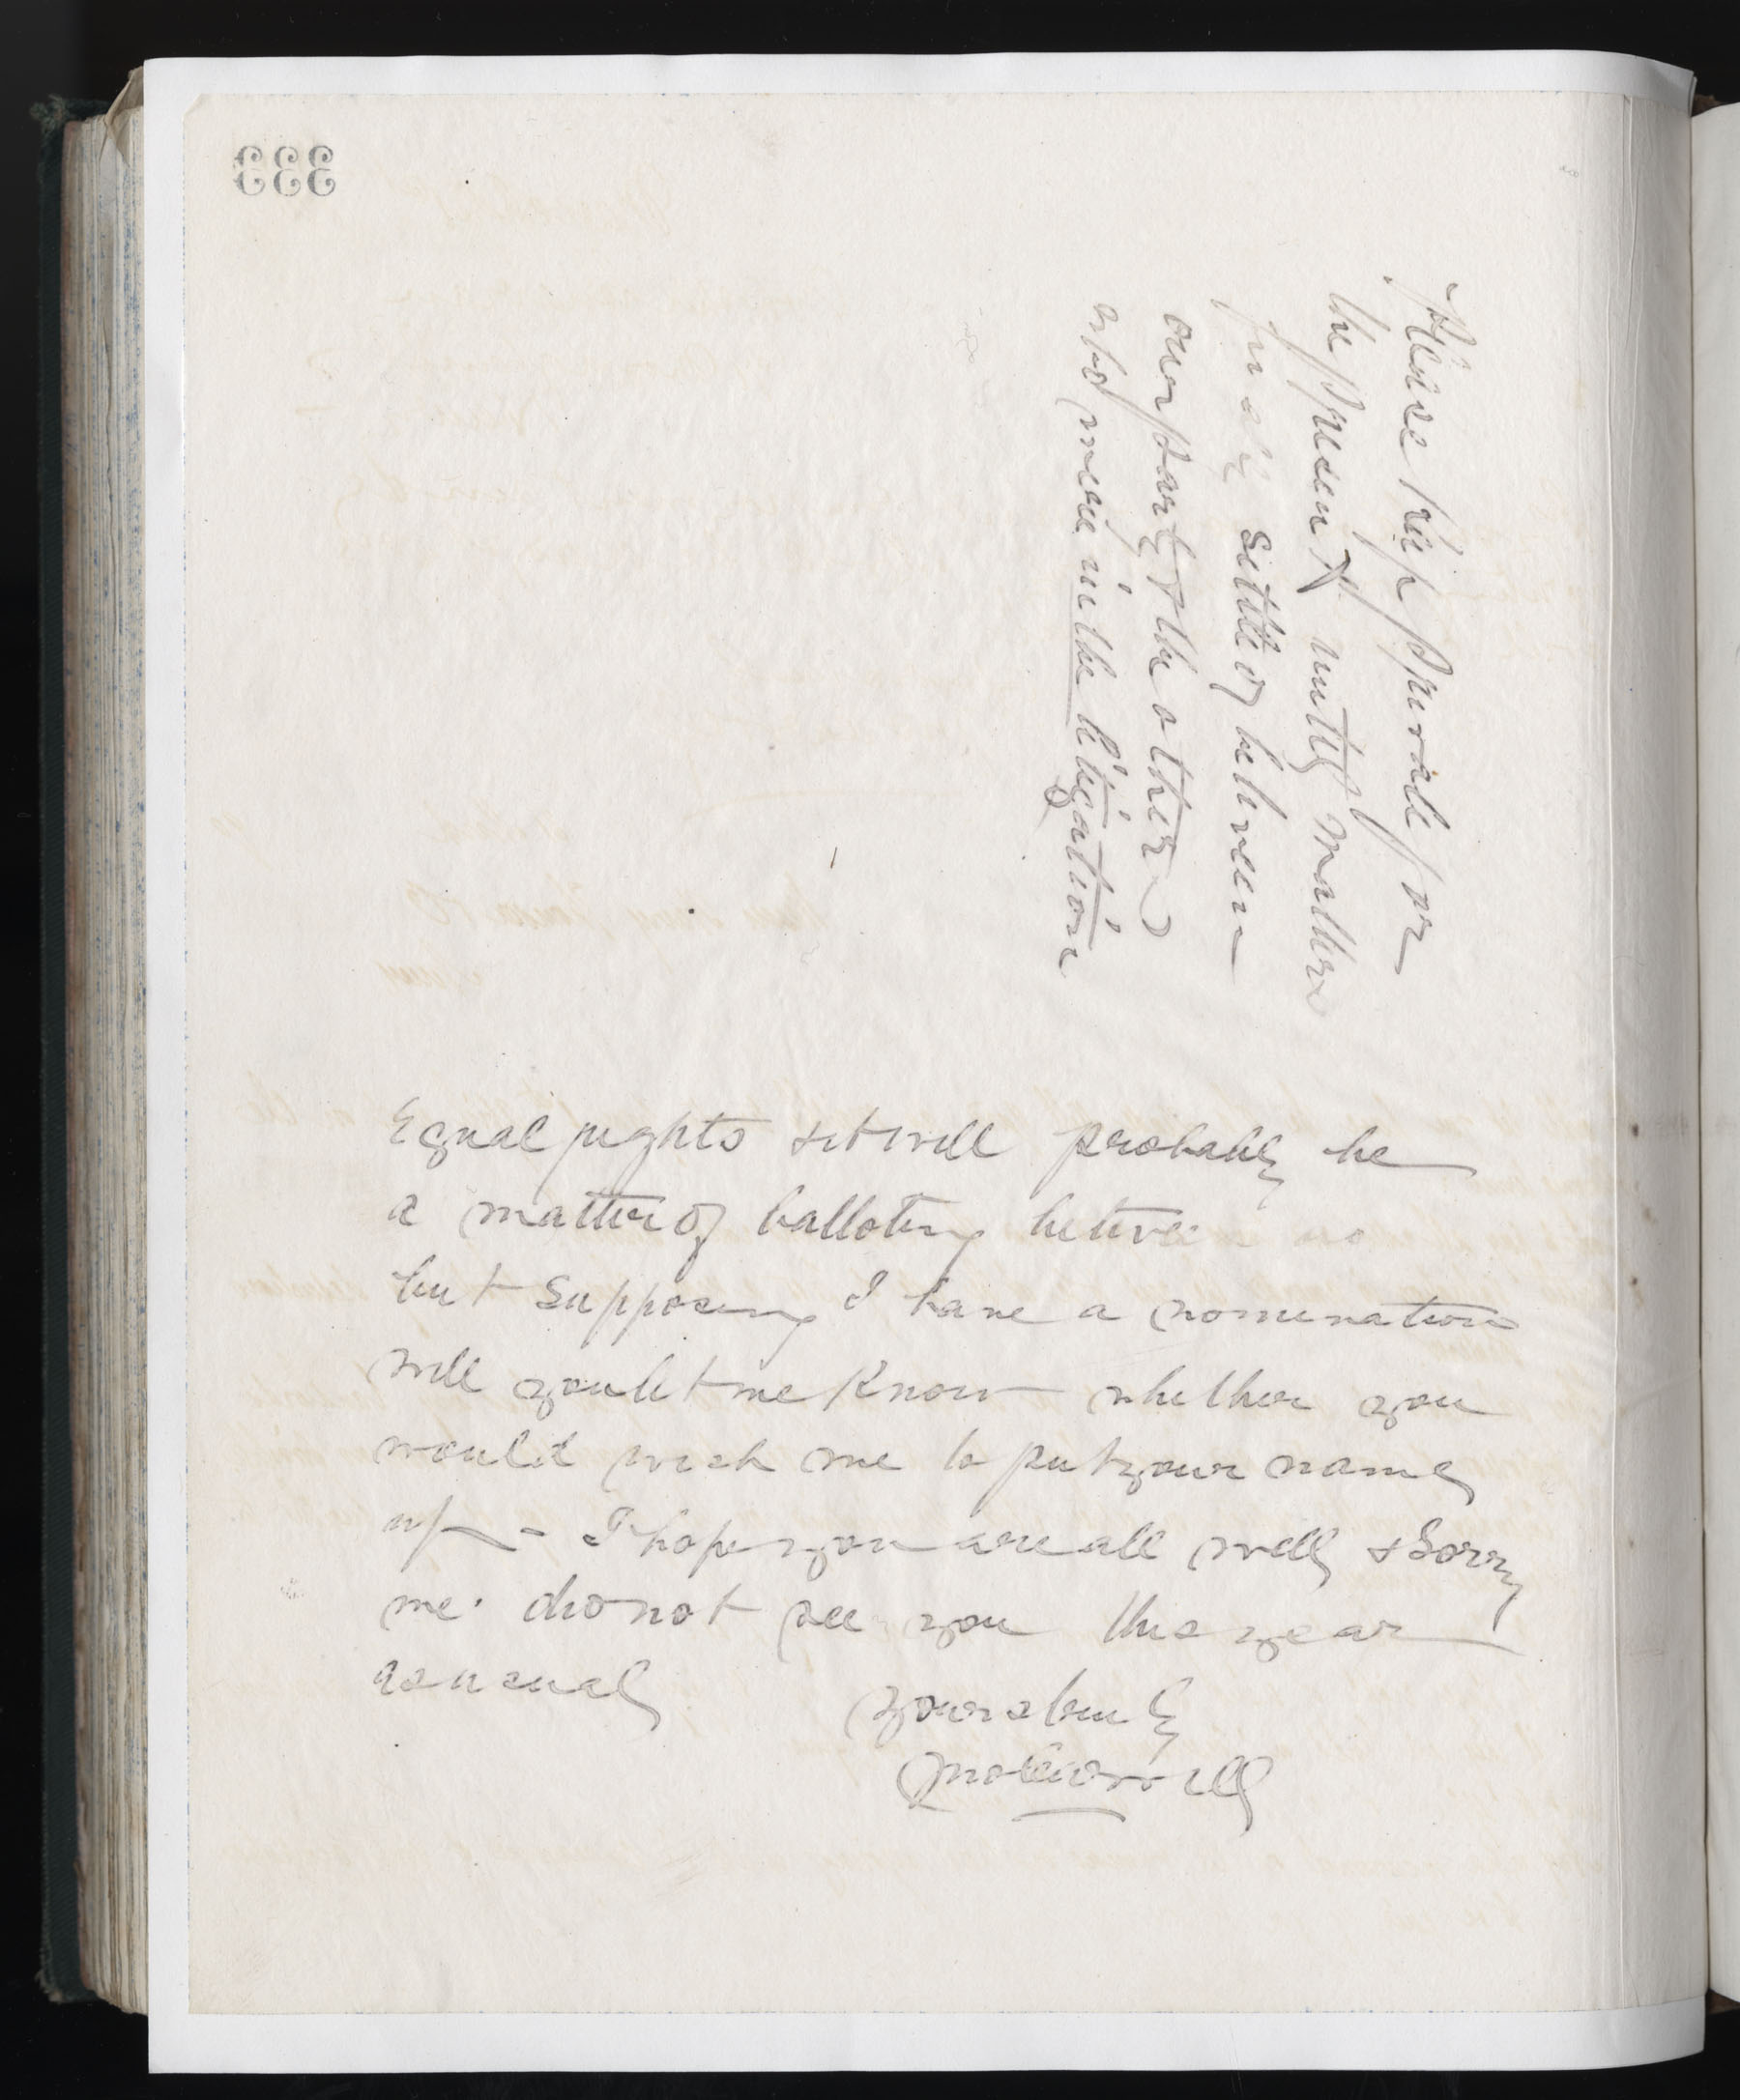 333
Please keep private for
the present until matters
finaly settled between
our party & the other
also more in the litigation
Equal rights & it will probably be
a matter of balloting between us
but supposing I have a nomination
will you let me know whether you
would wish me to put your name
up - I hope you are all well & sorry
we did not see you this year
as usual
Yours truly